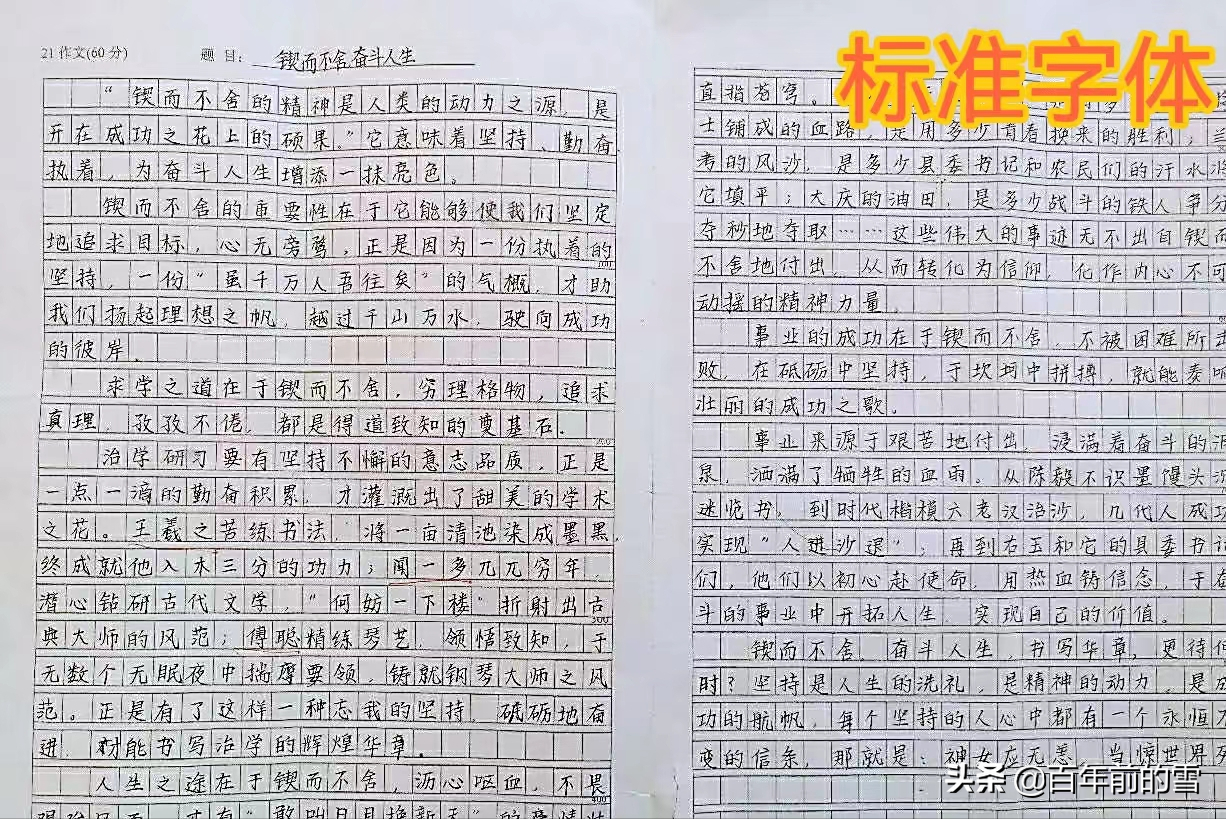 标准字体
21 作文(60分) 题目: 锲而不舍 奋斗人生
“锲而不舍的精神是人类的动力之源，是
开在成功之花上的硕果。”它意味着坚持、勤奋
执着，为奋斗人生增添一抹亮色。
锲而不舍的重要性在于它能够使我们坚定
地追求目标，心无旁骛，正是因为一份执着的
100
坚持，一份“虽千万人吾往矣”的气概，才助
我们扬起理想之帆，越过千山万水，驶向成功
的彼岸.
求学之道在于锲而不舍，穷理格物，追求
真理，孜孜不倦，都是得道致知的奠基石.
200
治学研习要有坚持不懈的意志品质，正是
一点一滴的勤奋积累，才灌溉出了甜美的学术
之花。王羲之苦练书法，将一亩清池染成墨黑，
终成就他入木三分的功力；闻一多兀兀穷年，
潜心钻研古代文学，“何妨一下楼”折射出古
300
典大师的风范；傅聪精练琴艺，领悟致知，于
无数个无眠夜中揣摩要领，铸就钢琴大师之风
范。正是有了这样一种忘我的坚持，砥砺地奋
进，才能书写治学的辉煌华章.
人生之途在于锲而不舍，沥心呕血，不畏
400
才有“敢叫日月换新天”的豪情壮
直指苍穹。
士铺成的血路，是用多少 换来的胜利；
考的风沙，是多少县委书记和农民们的汗水
它填平；大庆的油田，是多少战斗的铁人争分
夺秒地夺取……这些伟大的事迹无不出自锲而
不舍地付出，从而转化为信仰，化作内心不可
动摇的精神力量.
事业的成功在于锲而不舍，不被困难所击
败，在砥砺中坚持，于坎坷中拼搏，就能奏响
壮丽的成功之歌.
事业来源于艰苦地付出，浸满着奋斗的泪
泉，洒满了牺牲的血雨。从陈毅不识墨馒头沉
迷览书，到时代楷模六老汉治沙，几代人成功
实现“人进沙退”；再到右玉和它的县委书记
们，他们以初心赴使命，用热血铸信念，于奋
斗的事业中开拓人生，实现自己的价值。
锲而不舍，奋斗人生，书写华章，更待何
时？坚持是人生的洗礼，是精神的动力，是成
功的航帆，每个坚持的人心中都有一个永恒不
变的信条，那就是：神女应无恙，当惊世界殊
头条@百年前的雪